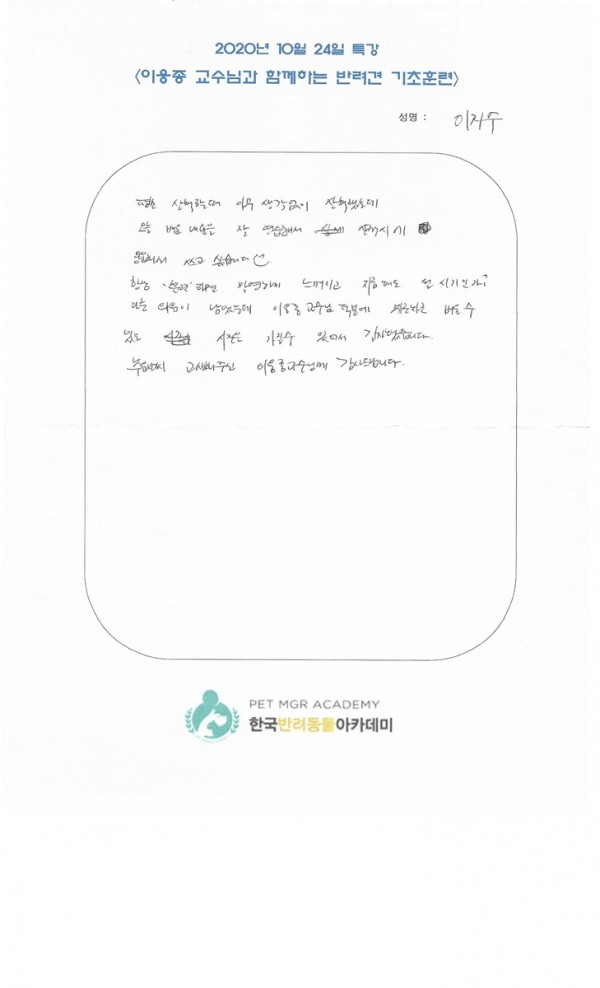 2020년 10월 24일 특강
<이웅종 교수님과 함께하는 반려견 기초훈련>
성명 : 이지수
평소 산책할때 아무 생각없이 산책했는데
오늘 배운 내용을 잘 연습해서 산책시 기
응용해서 쓰고 싶습니다
항상 '훈련'하면 막연하게 느껴지고 지금 해도 될 시기인가?
라는 의문이 남았는데 이웅종 교수님 덕분에 배울수
있는 시간을 가질수 있어서 감사했습니다.
추운날씨 고생해주신 이웅종교수님께 감사드립니다.
PET MGR ACADEMY
한국반려동물아카데미